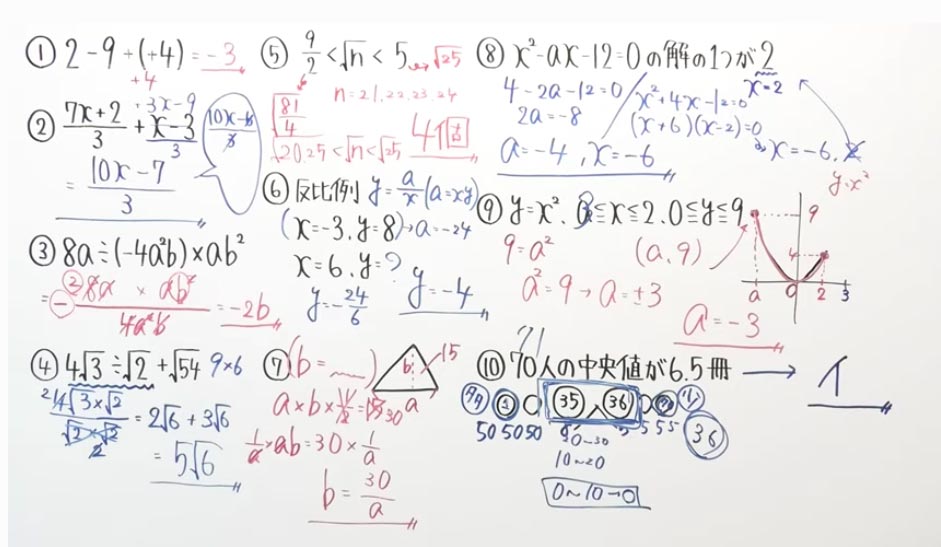 ① 2-9+(+4) = -3
+4
② (7x+2)/3 + (x-3)/3
+3x-9
= (10x-7)/3
③ 8a÷(-4a²b)×ab²
= - (8a × ab²)/(4a²b) = -2b
②
④ 4√3÷√2+√54 9×6
(4√3×√2)/(√2×√2) = 2√6+3√6
2
= 5√6
⑤ 9/2<√n<5 → √25
n=21,22,23,24
√(81/4)
√20.25<√n<√25 4個
⑥ 反比例 y=a/x (a=xy)
(x=-3, y=8) → a=-24
x=6, y=?
y=-24/6 y=-4
⑦ (b= )
15
b
a
a×b×1/2=15 30
1/a×ab=30×1/a
b=30/a
⑧ x²-ax-12=0の解の1つが2
x=2
4-2a-12=0
2a=-8
x²+4x-12=0
(x+6)(x-2)=0
x=-6, 2
a=-4, x=-6
y=x²
⑨ y=x², a≦x≦2. 0≦y≦9
9=a² (a,9)
a²=9→a=±3
a=-3
9
4
a 0 2 3
⑩ 70人の中央値が6.5冊 → イ
71
35 36
50 50 50
5 5 5
36
20~30
10~20
0~10→0